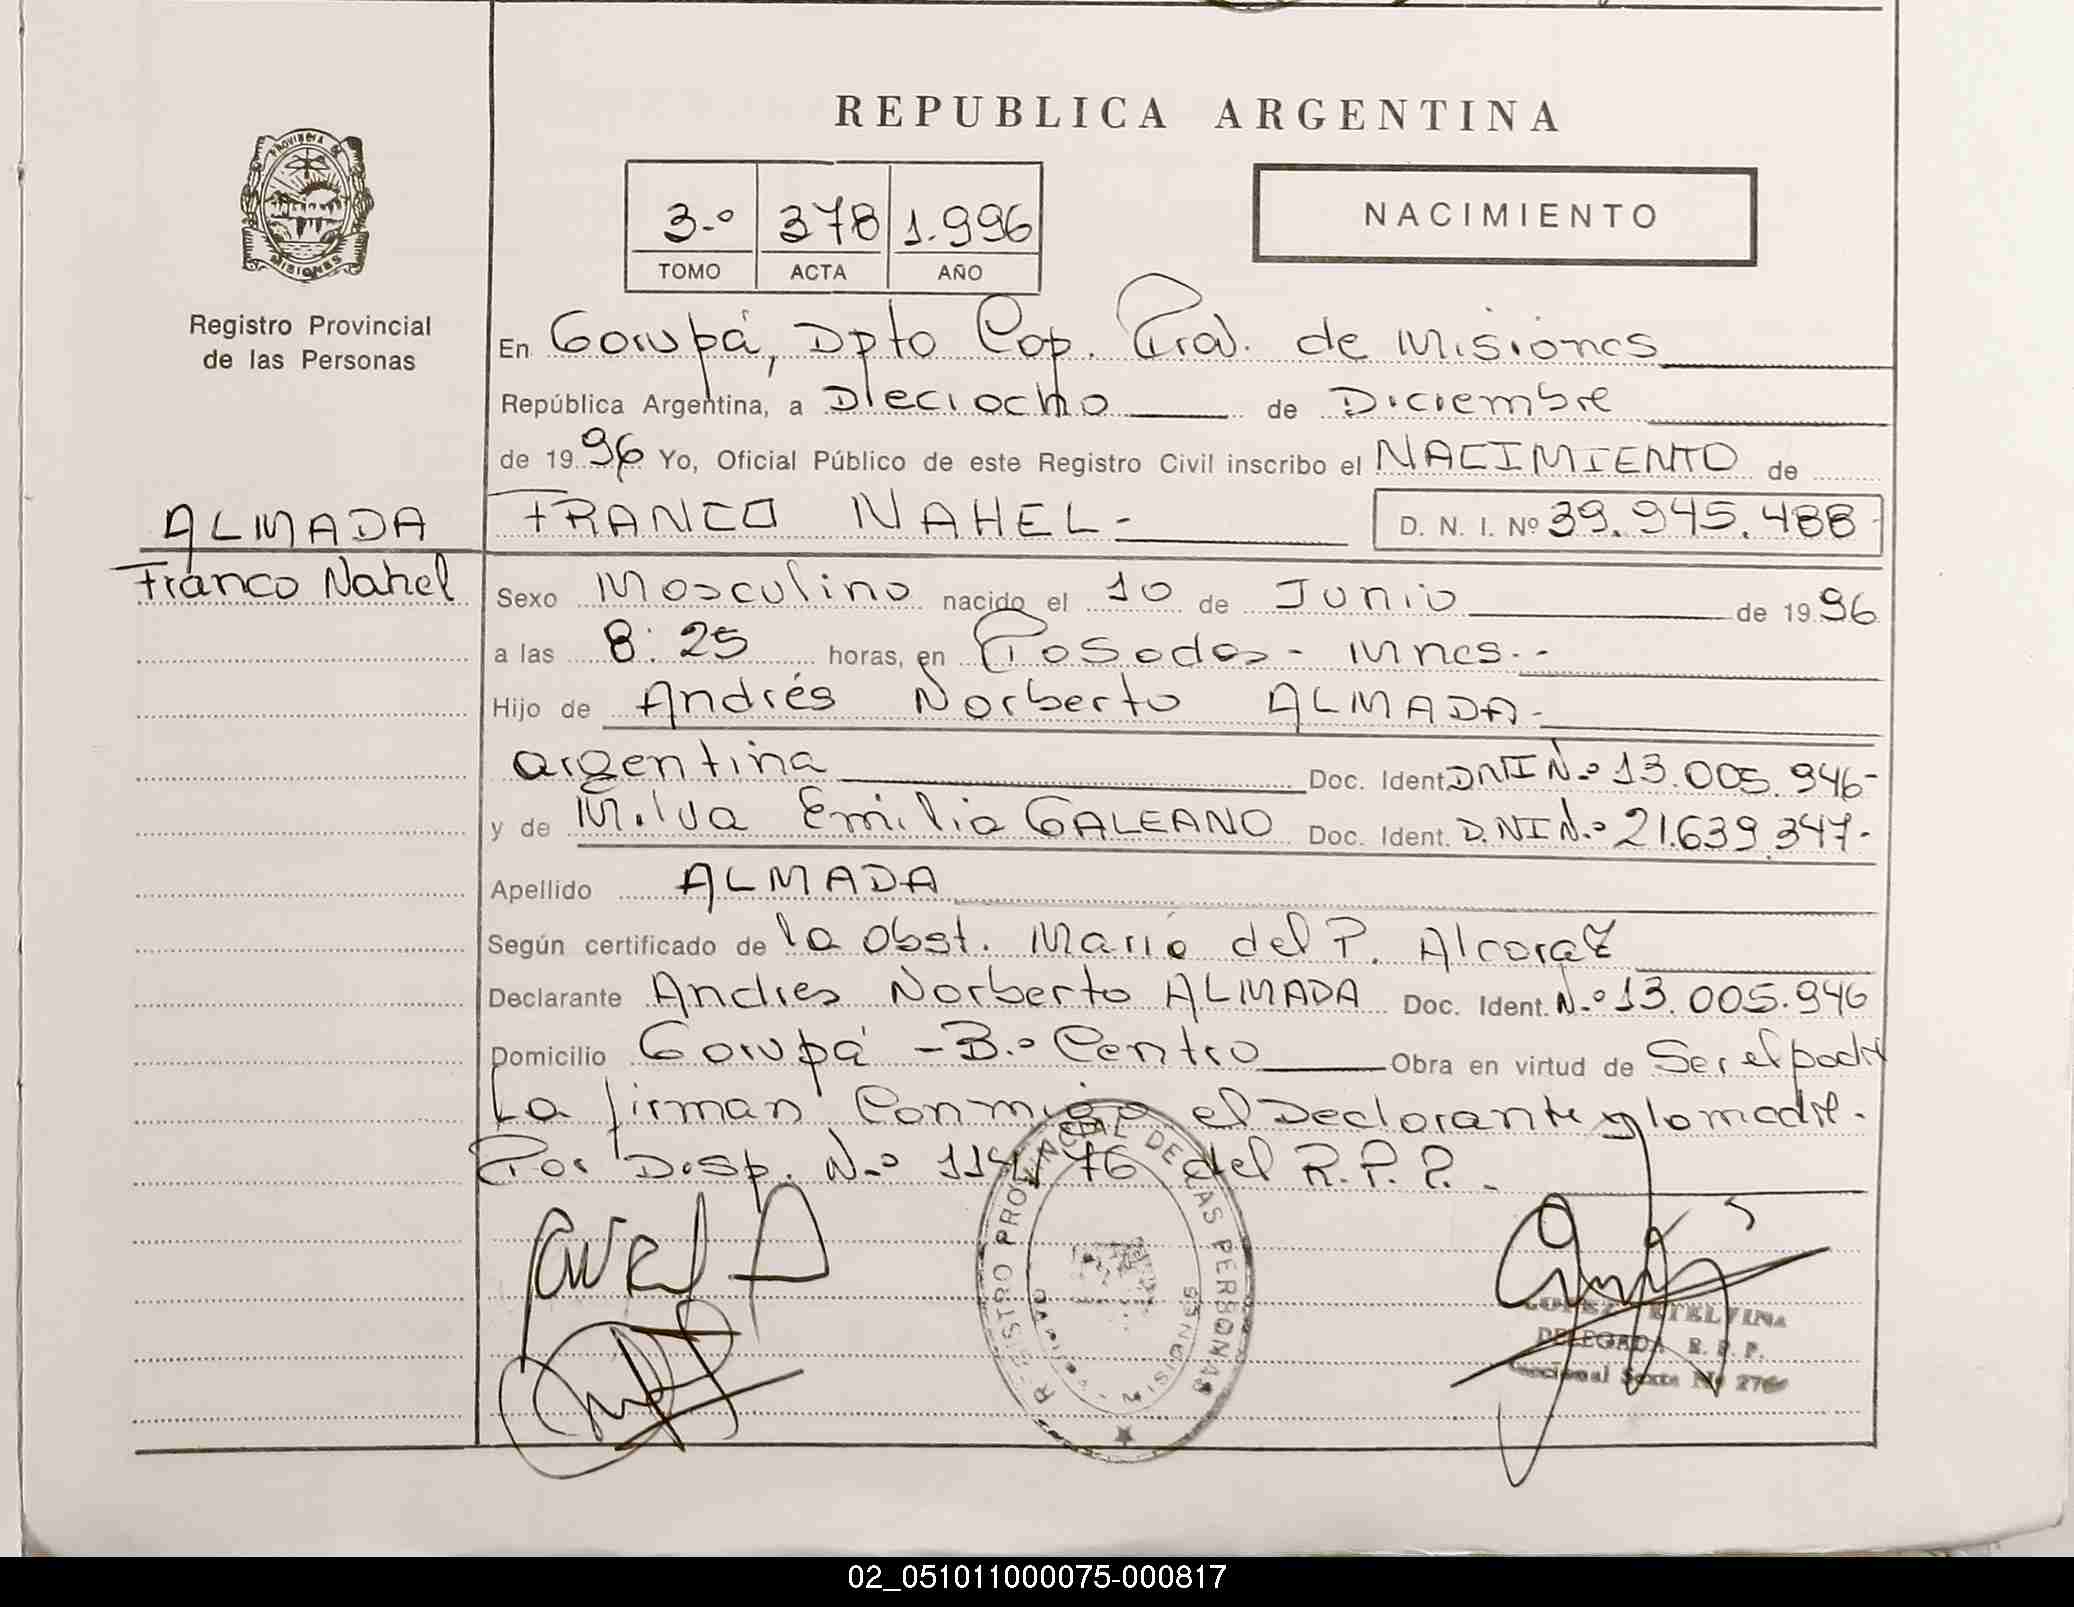 REPUBLICA ARGENTINA
PROVINCIA DE
MISIONES
Registro Provincial
de las Personas
3.º 378 1.996
TOMO ACTA AÑO
NACIMIENTO
En Garupá, Dpto Cap. Prov. de Misiones
República Argentina, a Dieciocho de Diciembre
de 1996 Yo, Oficial Público de este Registro Civil inscribo el NACIMIENTO de
ALMADA
Franco Nahel
FRANCO NAHEL- D. N. I. Nº 39.945.488-
Sexo Masculino nacido el 10 de Junio de 1996
a las 8:25 horas, en Posadas - Mnes.-
Hijo de Andrés Norberto ALMADA-
argentina Doc. Ident. DNI N.º 13.005.946-
y de Milva Emilia GALEANO Doc. Ident. D.NI N.º 21.639.347-
Apellido ALMADA
Según certificado de la Obst. María del P. Alcaraz
Declarante Andres Norberto ALMADA Doc. Ident. N.º 13.005.946
Domicilio Garupá - B.º Centro Obra en virtud de Ser el padre
La firman Conmigo el Declarante y la madre.
Por Disp. N.º 114/76 del R.P.P.
REGISTRO PROVINCIAL DE LAS PERSONAS
MISIONES
ETELVINA
DELEGADA R. P. P.
Seccional Sexta Nº
02_051011000075-000817